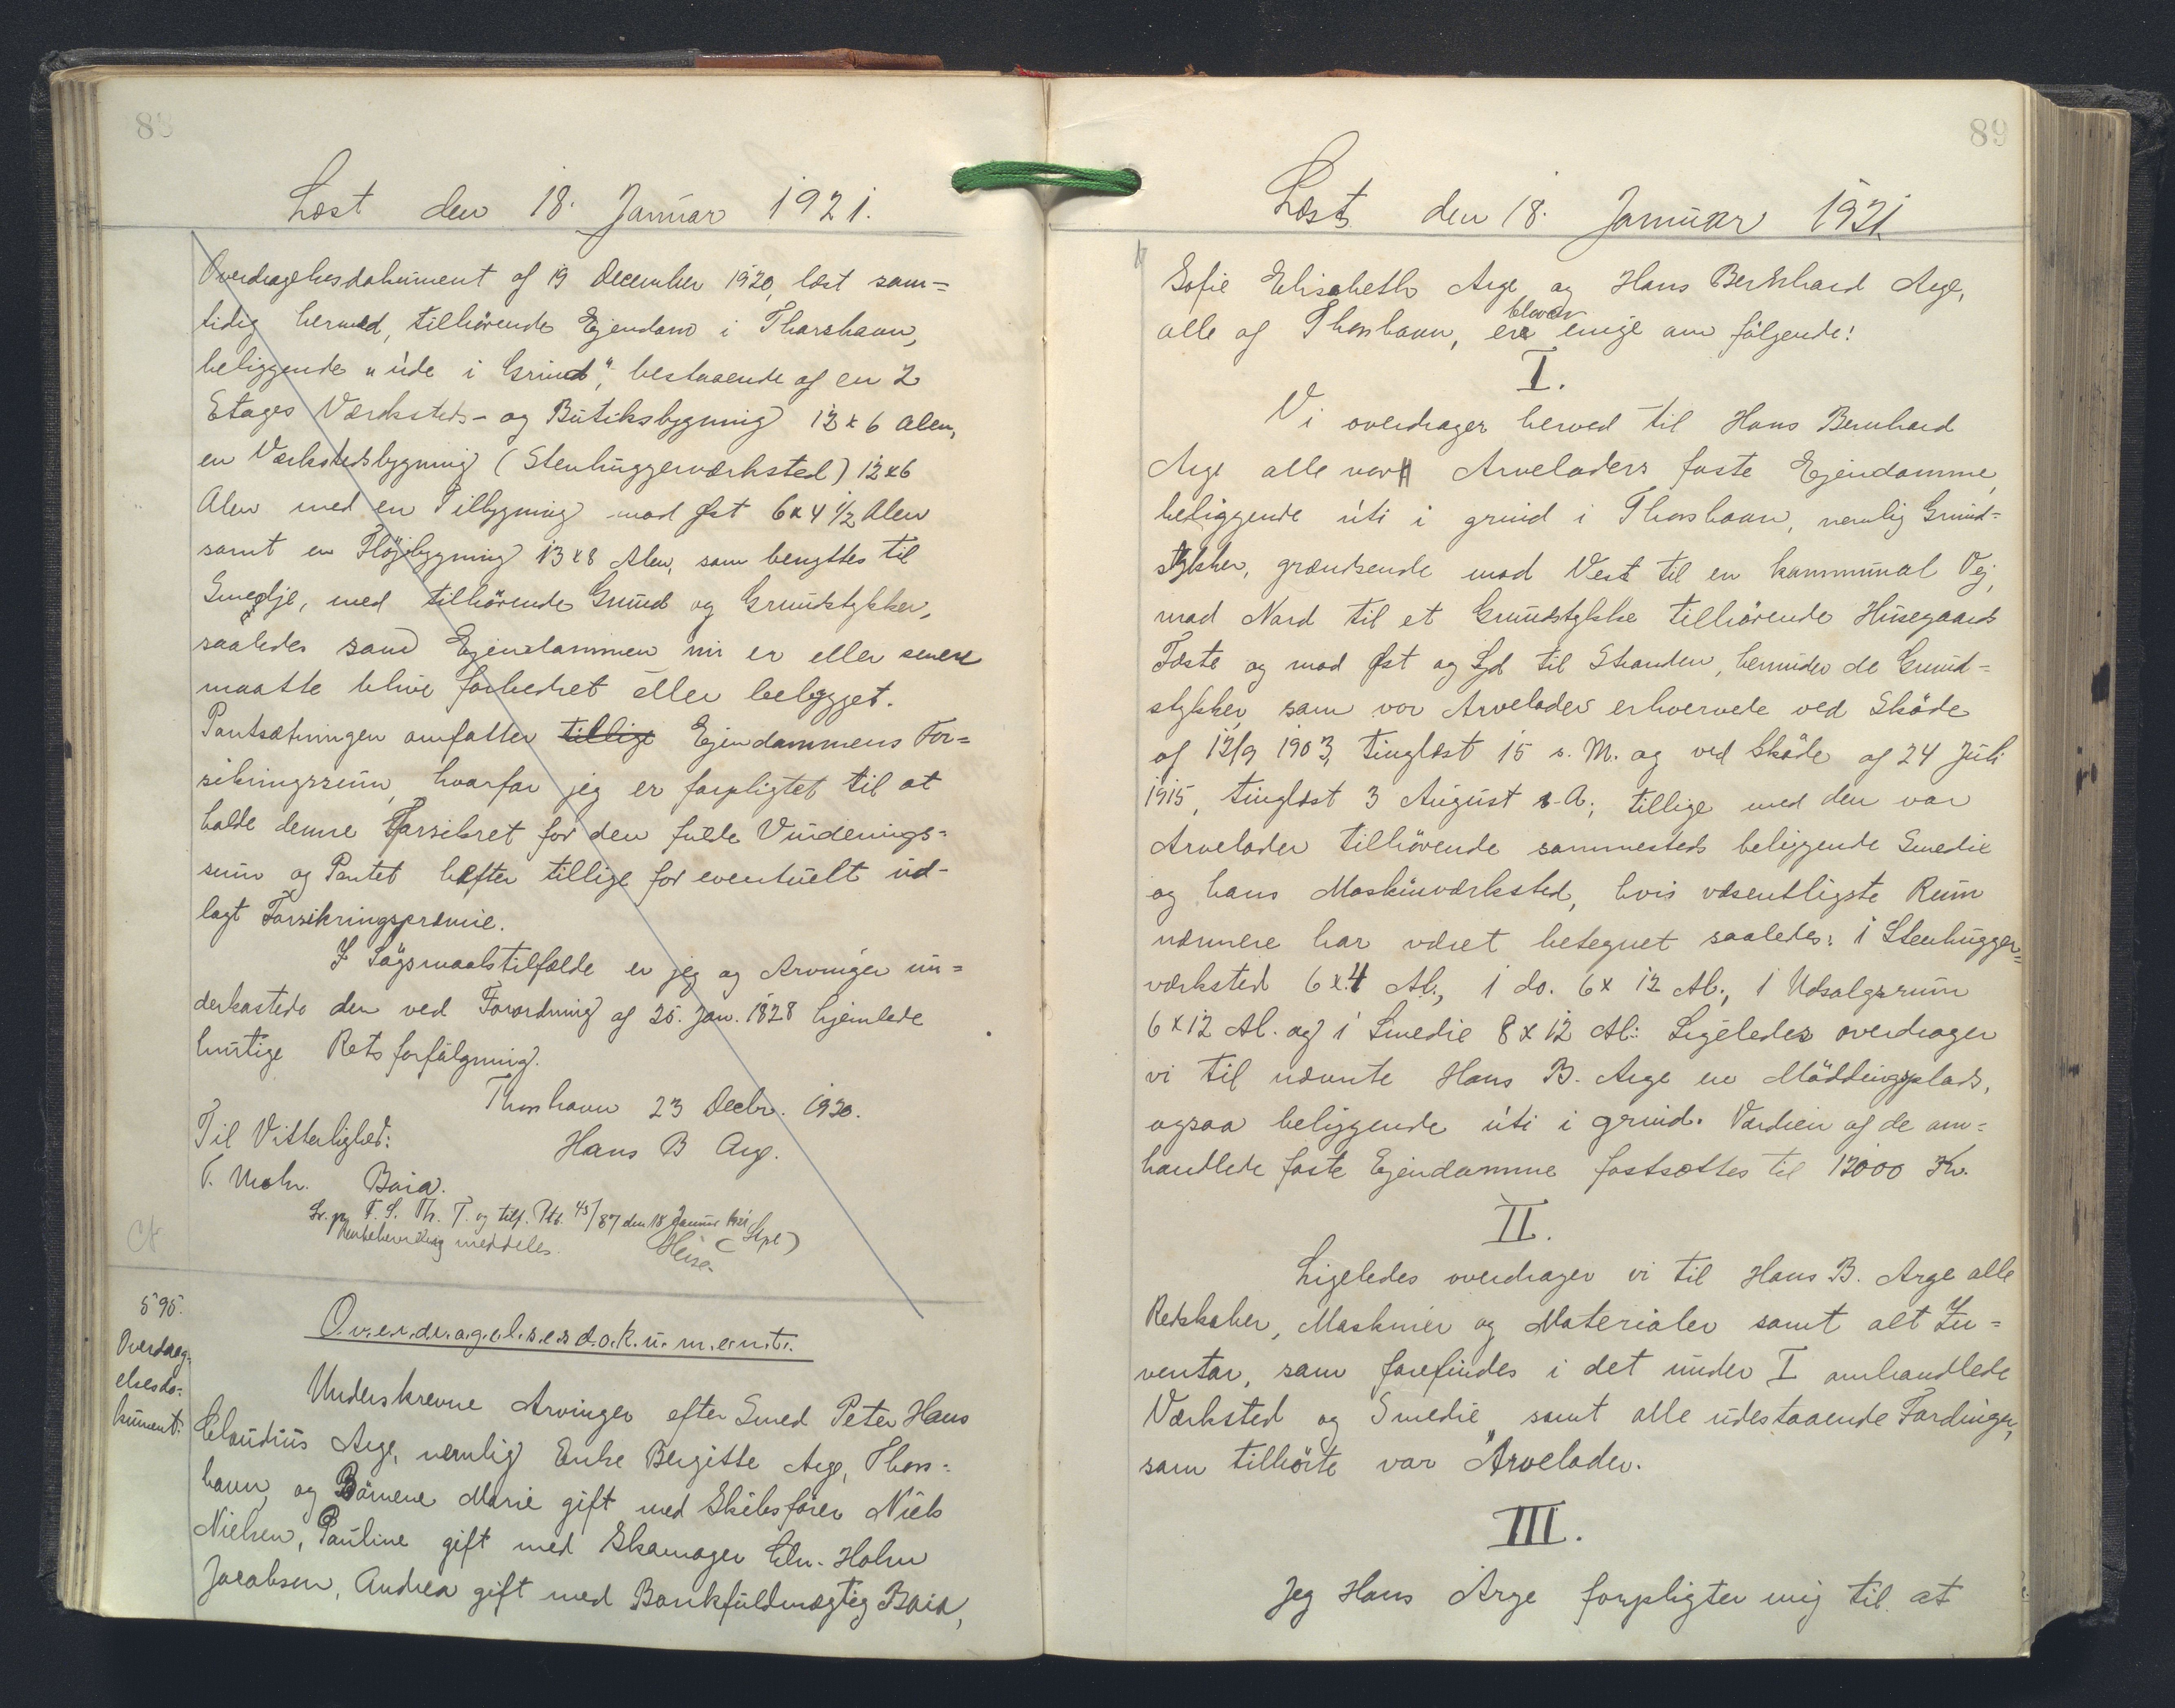 88
Læst den 18. Januar 1921.
Overdragelsesdokument af 19 December 1920, læst sam=
tidig hermed, tilhørende Ejendom i Thorshavn,
beliggende "úde i Grind", bestaaende af en 2
Etages Værksteds- og Butiksbygning 12 x 6 Alen,
en Værkstedsbygning (Stenhuggerværksted) 12 x 6
Alen med en Tilbygning mod Øst 6 x 4 1/2 Alen
samt en Fløjbygning 13 x 8 Alen, som benyttes til
Smedje, med tilhørende Grund og Grundstykker,
saaledes som Ejendommen nu er eller senere
maatte blive forbedret eller bebygget.
Pantsætningen omfatter tillige Ejendommens For=
sikringssum, hvorfor jeg er forpligtet til at
holde denne forsikret for den fulde Vurderings=
sum og Pantet hæfter tillige for eventuelt ud-
lagt Forsikringspræmie.
I Søgsmaalstilfælde er jeg og Arvinger un=
derkastede den ved Forordning af 25. Jan. 1828 hjemlede
hurtige Retsforfølgning.
Thorshavn 23 Decbr. 1920.
Til Vitterlighed:
Hans B Arge.
T. Mohr. Baia.
Lr. p. F. S. Th. T. og tilf. Ptb. 45/87 den 18 Januar 1921
meddeles.
595.
Overdrag-
elsesdo-
kument.
Overdragelsesdokument.
Underskrevne Arvinger efter Smed Peter Hans
Claudius Arge, nemlig Enke Bergitte Arge, Thors=
havn, og Børnene Marie gift med Skibsfører Niels
Nielsen, Pauline gift med Skomager Chr. Holm
Jacobsen, Andrea gift med Bankfuldmægtig Baia,
89
Læst den 18. Januar 1921
Sofie Elisabeth Arge og Hans Bernhard Arge,
alle af Thorshavn, er blevev enige om følgende:
I.
Vi overdrager herved til Hans Bernhard
Arge alle vor Arveladers faste Ejendomme,
beliggende úti i grind i Thorshavn, nemlig Grund=
stykker, grændsende mod Vest til en kommunal Vej,
mod Nord til et Grundstykke tilhørende Husegaards
Fæste og mod Øst og Syd til Stranden, herunder de Grund=
stykker, som vor Arvelader erhvervede ved Skøde
af 12/9 1903, tinglæst 15 s. M. og ved Skøde af 24 Juli
1915, tinglæst 3 August s. A; tillige med den vor
Arvelader tilhørende sammesteds beliggende Smedie
og hans Maskinværksted, hvis væsentligste Rum
nærmere har været betegnet saaledes: 1 Stenhugger=
værksted 6 x 4 Al., 1 do. 6 x 12 Al., 1 Udsalgsrum
6 x 12 Al. og 1 Smedie 8 x 12 Al: Ligeledes overdrager
vi til nævnte Hans B. Arge en Møddingsplads,
ogsaa beliggende úti i grind. Værdien af de om=
handlede faste Ejendomme fastsættes til 12000 Kr.
II.
Ligeledes overdrager vi til Hans B. Arge alle
Redskaber, Maskiner og Materialer samt alt In=
ventar, som forefindes i det under I omhandlede
Værksted og Smedie samt alle udestaaende Fordringer,
som tilhørte vor Arvelader.
III.
Jeg Hans Arge forpligter mig til at